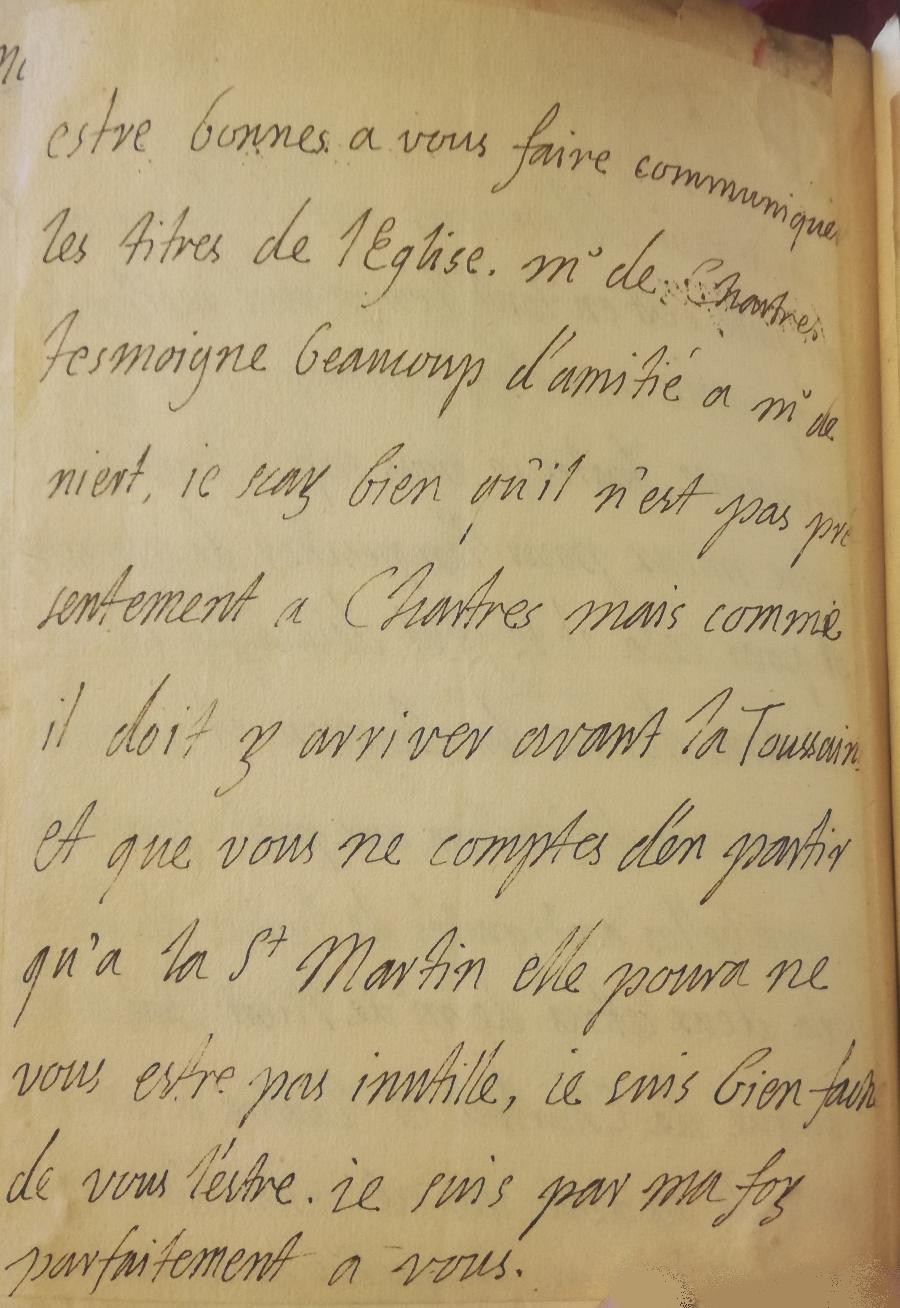 estre bonnes a vous faire communique
les titres de l'Eglise. mr de Chartres
tesmoigne beaucoup d'amitié a mr de
niert, ie scay bien qu'il n'est pas pre
sentement a Chartres mais comme
il doit y arriver avant la Toussain
et que vous ne comptes d'en partir
qu'a la St Martin elle poura ne
vous estre pas inutille, ie suis bien
de vous l'estre. ie suis par ma foy
parfaitement a vous.